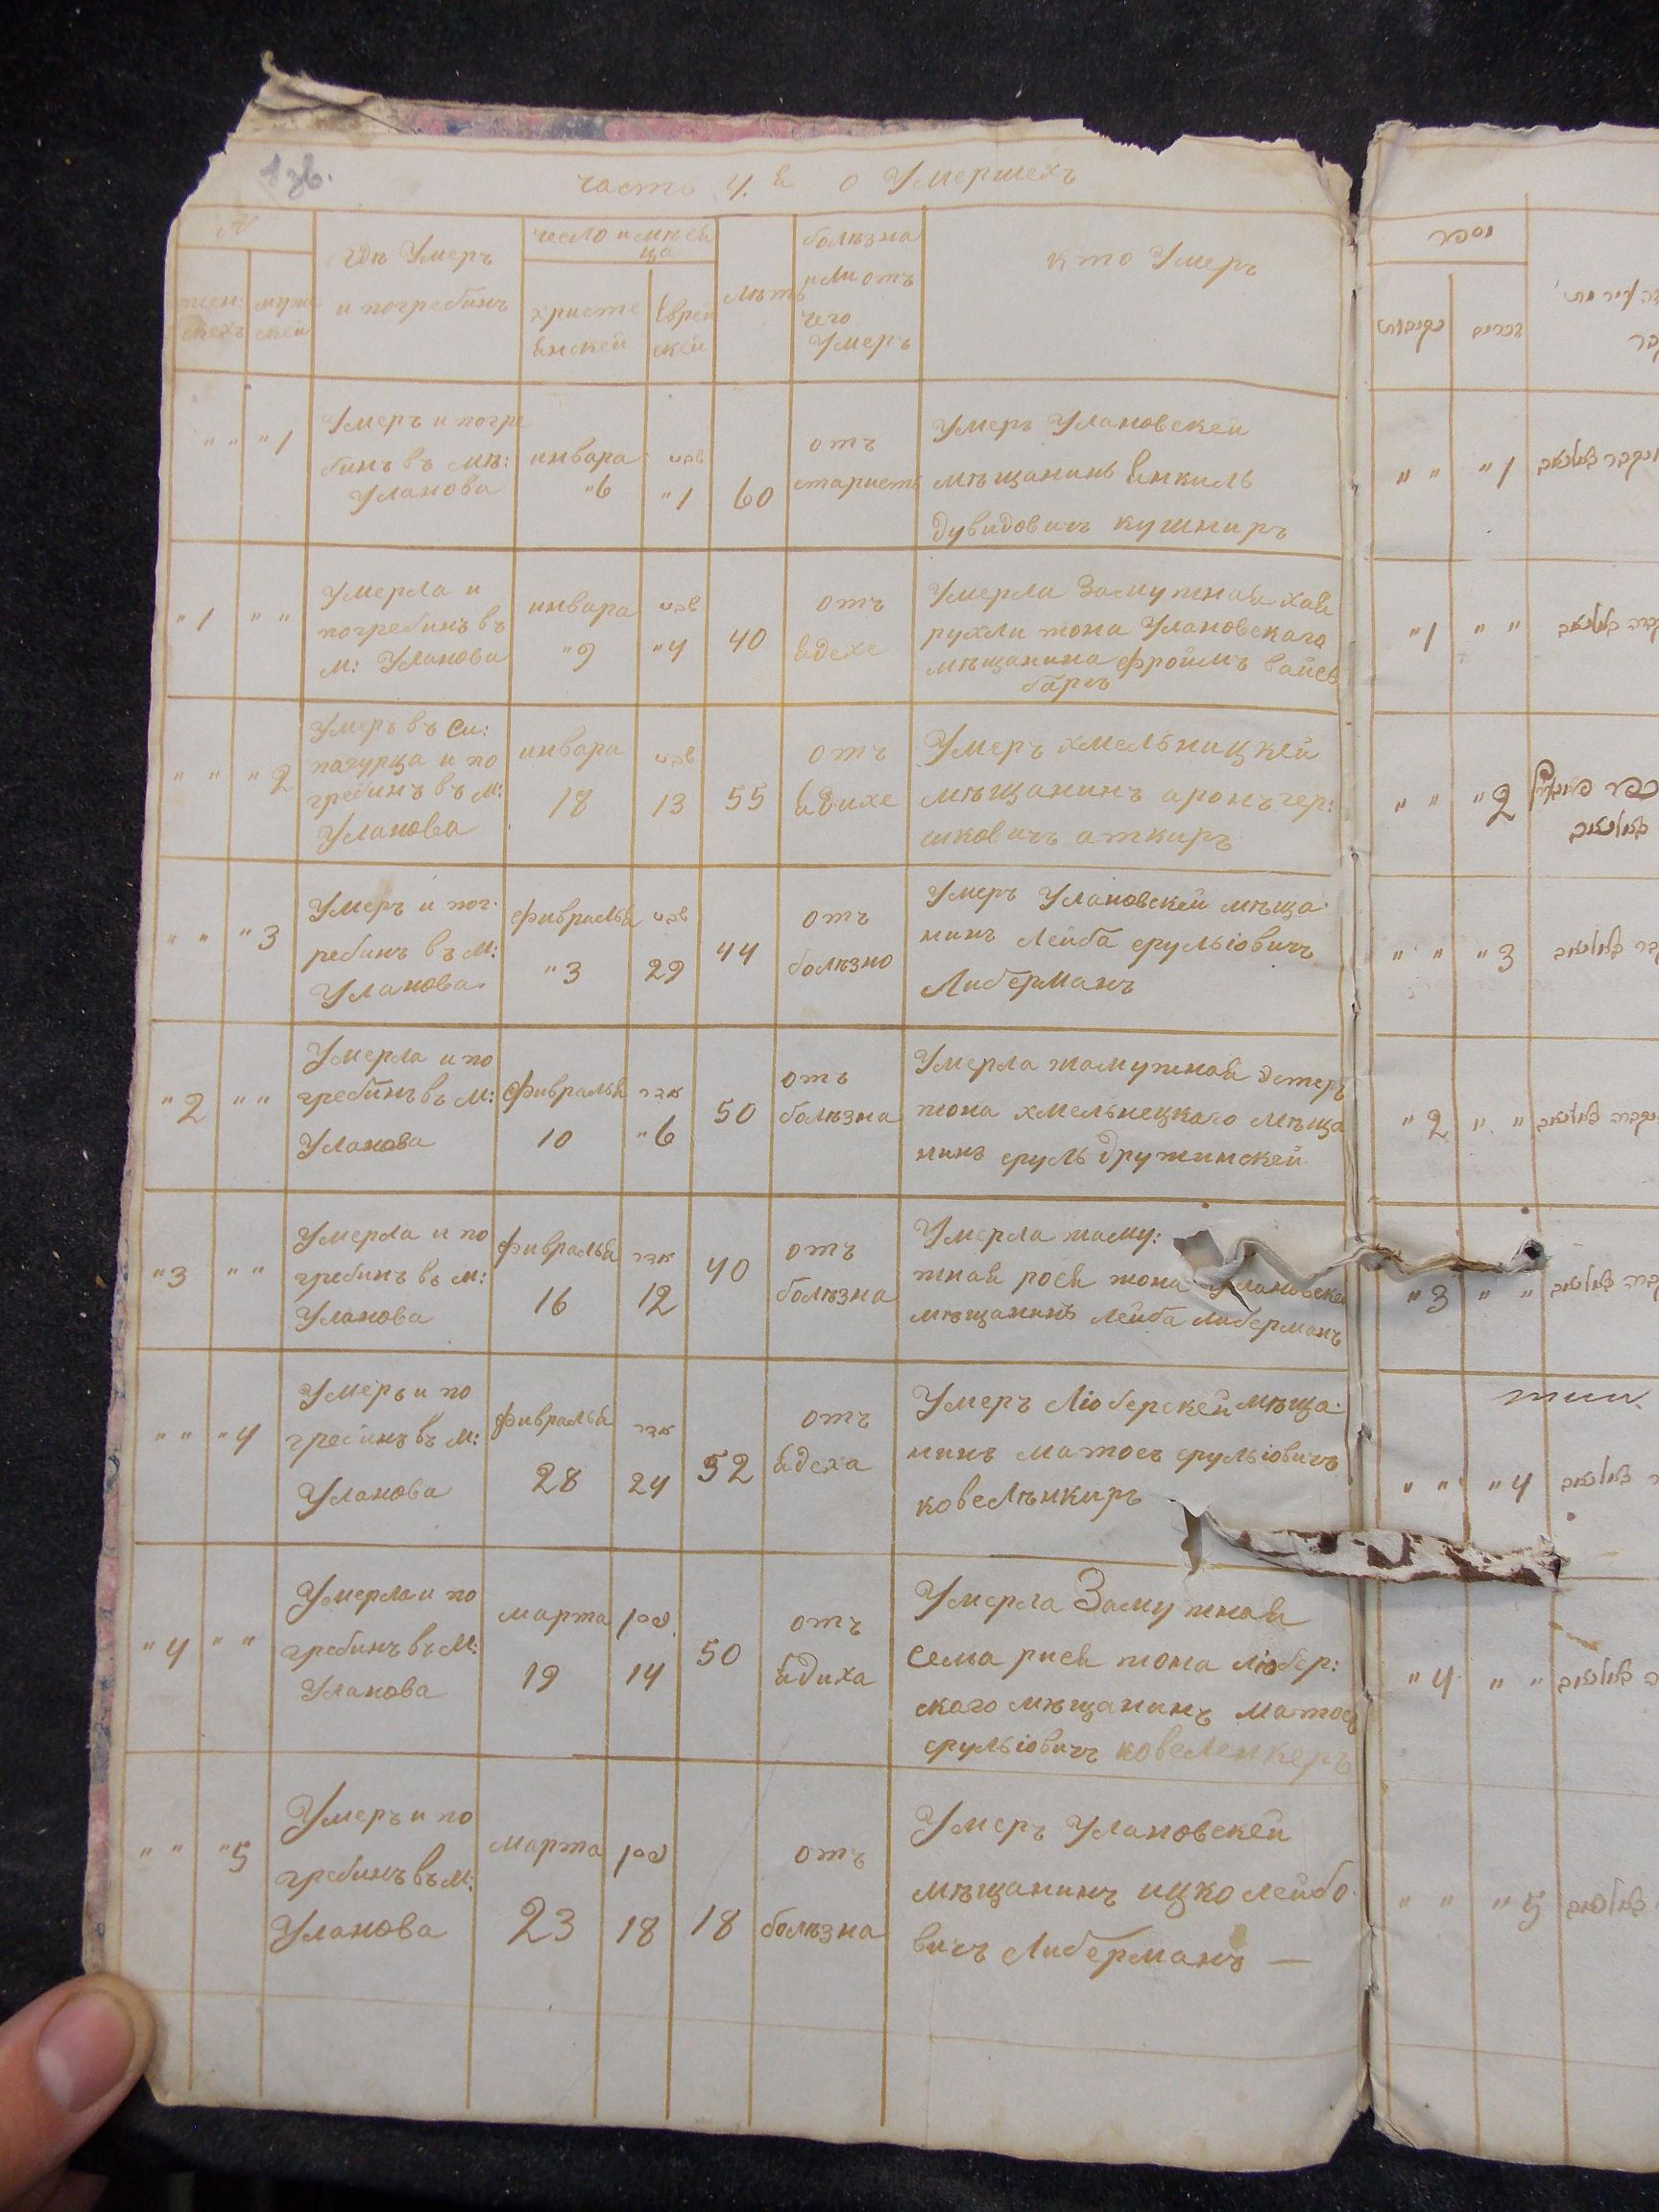 часть 4.я о Умершехъ
№
жен: скехъ
муже скей
Гдѣ Умеръ
и погребинъ
чесло и мѣсей
ца
христе
янскей
Еврей
скей
лѣтъ
болѣзна
или отъ
чего
Умеръ
кто Умеръ
" " "1
Умеръ и погре
бинъ въ мѣ:
Уланова
инвара
"6
שבט
"1
60
отъ
старисть
Умеръ Улановскей
мѣщанинь Янкиль
дувидовичъ кушниръ
"1 " "
Умерла и
погребинъ въ
м: Уланова
инвара
"9
שבט
"4
40
отъ
ядехе
Умерла Замужная хая
рухли жона Улановскаго
мѣщанина фроимъ вайсв
баргъ
" " "2
Умеръ въ Си:
пагурца и по
гребинъ въ м:
Уланова
инвара
18
שבט
13
55
отъ
ядихе
Умеръ хмельницкей
мѣщанинъ аронъ гер:
шковичъ аткиръ
" " "3
Умеръ и пог.
ребинъ въ м:
Уланова.
фивральа
"3
שבט
29
44
отъ
болѣзно
Умеръ Улановскей мѣща.
нинъ Лейба срульіовичъ
Либерманъ
"2 " "
Умерла и по
гребинъ въ м:
Уланова
фивральа
10
אדר
"6
50
отъ
болѣзна
Умерла жамужная Эстеръ
жона хмельнецкаго мѣща
нинъ сруль дружинскей
"3 " "
Умерла и по
гребинъ въ м:
Уланова
фивральа
16
אדר
12
40
отъ
болѣзна
Умерла жаму:
жная рося жона Улановске
мѣщанинъ Лейба Либерманъ
" " "4
Умеръ и по
гребинъ въ м:
Уланова
фивральа
28
אדר
24
52
отъ
ядеха
УмеръЛіоберскей мѣща.
нинъ матосъ срульіовичъ
ковелѣнкиръ
"4 " "
Умерла и по
гребинъ въ М:
Уланова
марта
19
ניסן
14
50
отъ
ядиха
Умерла Замужная
Сема рися жона Любер:
скаго мѣщанинъ матосъ
срульіовичъ ковеленкеръ
" " "5
Умеръ и по
гребинъ въ м:
Уланова
марта
23
ניסן
18
18
отъ
болѣзна
Умеръ Улановскей
мѣщанинъ ицко лейбо.
вичъ Либерманъ —
מספר
נקיבות
זכרים
" " "1
"1 " "
" " "2
" " "3
"2 " "
"3 " "
" " "4
"4 " "
" " "5